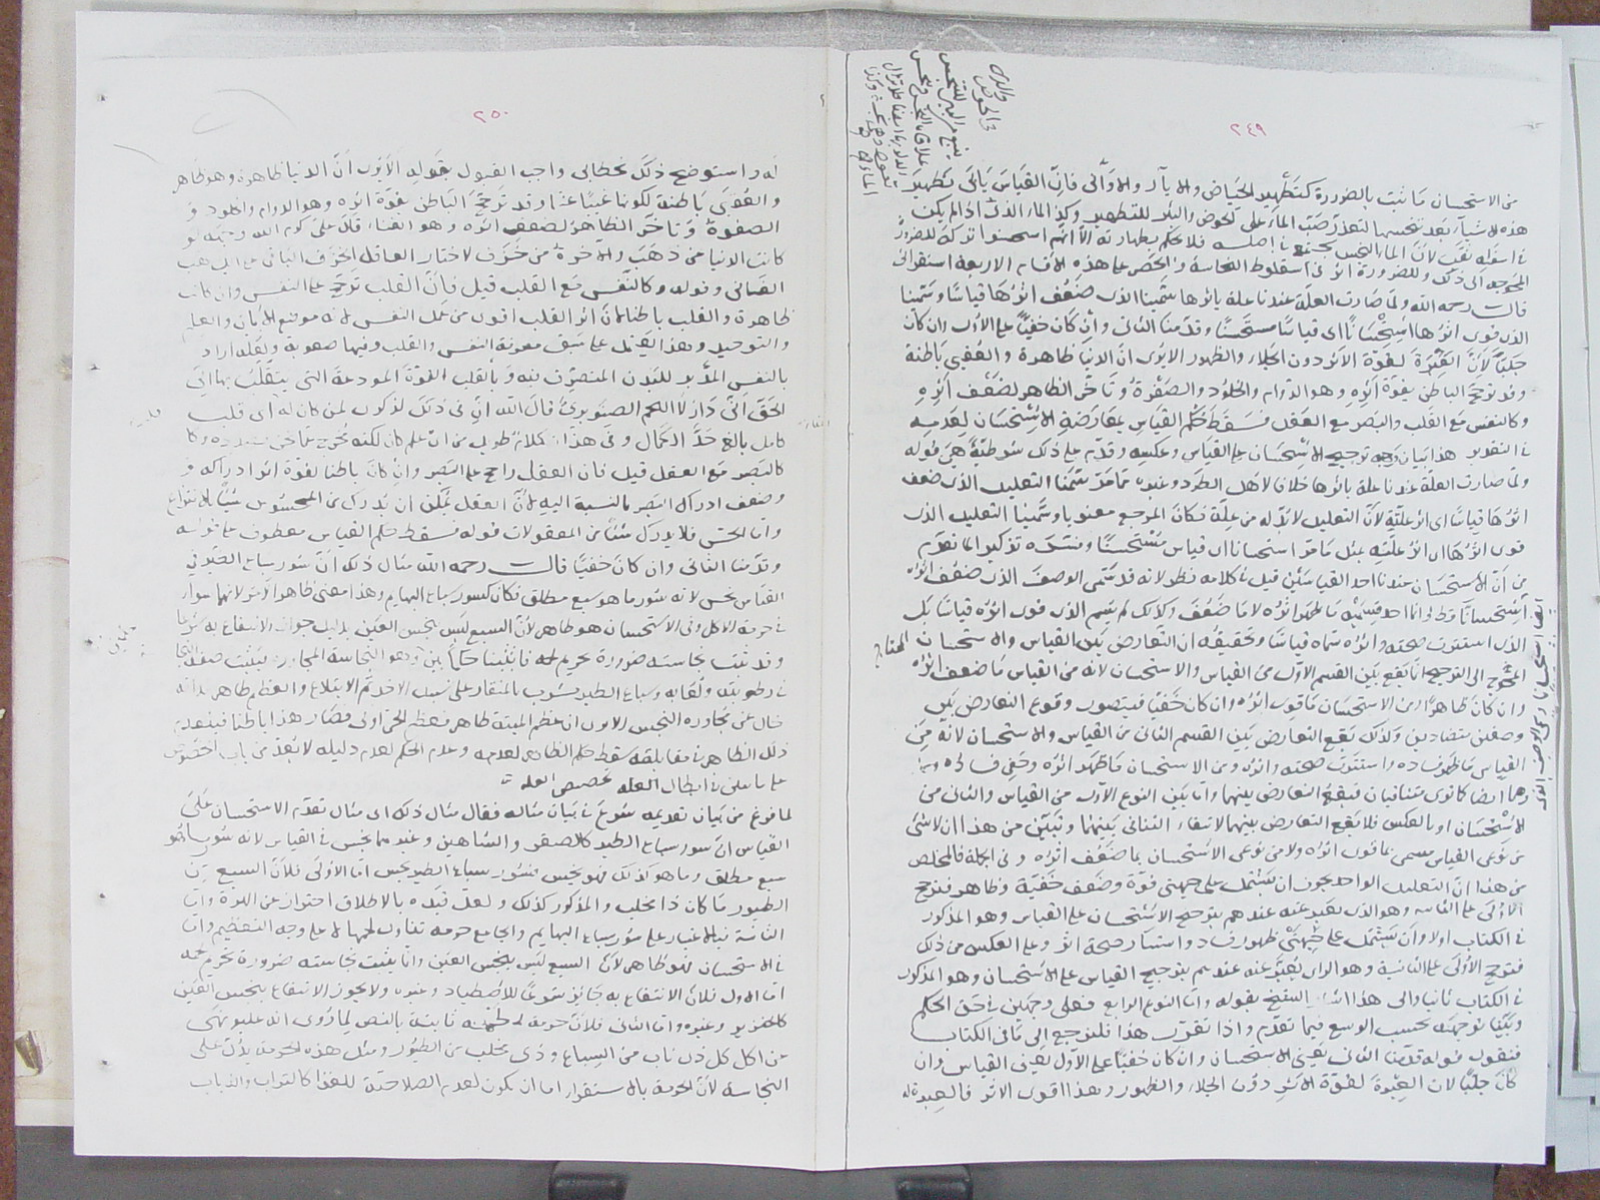 ٢٤٩
من الاستحسان ما ثبت بالضرورة كتطهير الحياض والآبار والأواني فإن القياس يأبى تطهير
هذه الأشياء بعد تنجسها لتعذر صب الماء على الحوض والبئر للتطهير وكذا الماء الذي إذا لم يكن
في أسفله ثقب لأن الماء النجس يجتمع في أصله فلا يحكم بطهارته إلا أنهم استحسنوا تركه للضرورة
المحوجة إلى ذلك وللضرورة أثر في إسقاط النجاسة والحصر على هذه الأقسام الأربعة استقرائي
قال رحمه الله ولما صارت العلة عندنا علة بأثرها سمينا الذي ضعف أثرها قياسا وسمينا
الذي قوى أثرها استحسانا أي قياسا مستحسنا وقدمنا الثاني وإن كان خفيا على الأول وإن كان
جليا لأن العبرة لقوة الأثر دون الجلاء والظهور ألا يرى أن الدنيا ظاهرة والعقبى باطنة
وقد ترجح الباطن بقوة أثره وهو الدوام والخلود والصفوة وتأخر الظاهر لضعف أثره
وكالنفس مع القلب والبصر مع العقل فسقط حكم القياس بمعارضة الاستحسان لعدمه
في التقدير هذا بيان وجه ترجيح الاستحسان على القياس وعكسه وقدم على ذلك شرطية هي قوله
ولما صارت العلة عندنا علة بأثرها خلافا لأهل الطرد وغيره مما مر سمينا التعليل الذي ضعف
أثرها قياسا أي أثر علته لأن التعليل لا بد له من علة فكان المرجع معنويا وسمينا التعليل الذي
قوى أثرها أي أثر علته بمثل ما مر استحسانا أي قياس مستحسنا
من أن الاستحسان عندنا أحد القياسين قيل في كلامه نظر لأنه قد سمى الوصف الذي ضعف أثره
استحسانا
الذي استترت صحته وأثره سماه قياسا وتحقيقه أن التعارض بين القياس والاستحسان المحتاج
المحوج إلى الترجيح إنما يقع بين القسم الأول من القياس والاستحسان لأنه من القياس ما ضعف أثره
وإن كان ظاهرا ومن الاستحسان ما قوى أثره وإن كان خفيا فيتصور وقوع التعارض بين
وصفين متضادين وكذلك يقع التعارض بين القسم الثاني من القياس والاستحسان لأنه من
القياس ما ظهر فساده واستترت صحته وأثره ومن الاستحسان ما ظهر أثره وخفي فساده
وهما أيضا متنافيان فيقع التعارض بينهما وأما بين النوع الأول من القياس والثاني من
الاستحسان أو بالعكس فلا يقع التعارض بينهما لانتفاء التنافي بينهما وتبين من هذا أن لا شيء
من نوعي القياس مسمى بما قوى أثره ولا من نوعي الاستحسان بما ضعف أثره وفي الجملة فالمخلص
من هذا أن التعليل الواحد يجوز أن يشتمل على جهتي قوة وضعف خفية وظاهر فترجح
الأولى على الثانية وهو الذي يعبر عنه عندهم بترجيح الاستحسان على القياس وهو المذكور
في الكتاب أولا وأن يشتمل على جهتي ظهور فساد واستتار صحة أثر وعلى العكس من ذلك
فترجح الأولى على الثانية وهو الذي يعبر عنه عندهم بترجيح القياس على الاستحسان وهو المذكور
في الكتاب ثانيا وإلى هذا أشار الشيخ بقوله وأما النوع الرابع فعلى وجهين في حق الحكم
وبينا توجهته بحسب الوسع فيما تقدم وإذا تقرر هذا فلنرجع إلى ما في الكتاب
فنقول قوله قدمنا الثاني يعني الاستحسان وإن كان خفيا على الأول يعني القياس وإن
كان جليا لأن العبرة لقوة الأثر دون الجلاء والظهور وهذا أقوى الأثر فالعبرة له
٢٥٠
له واستوضح ذلك بخطابي واجب القبول بقوله ألا يرى أن الدنيا ظاهرة وهو ظاهر
والعقبى باطنة لكونها غيبا عنا وقد ترجح الباطن بقوة أثره وهو الدوام والخلود و
الصفوة وتأخر الظاهر لضعف أثره وهو الفناء قال علي كرم الله وجهه لو
كانت الدنيا من ذهب والآخرة من خزف لاختار العاقل الخزف الباقي على الذهب
الفاني وقوله وكالنفس مع القلب قيل فإن القلب ترجح على النفس وإن كانت
ظاهرة والقلب باطنا لأن أثر القلب أقوى من عمل النفس لأنه موضع الإيمان والعلم
والتوحيد وهذا يبتنى على سبق معرفة النفس والقلب وفيها صعوبة ولعله أراد
بالنفس المدبر للبدن المتصرف فيه وبالقلب القوة المودعة التي يتقلب بها إلى
الحق أنى دار لا اللحم الصنوبري قال الله إن في ذلك لذكرى لمن كان له قلب أي قلب
كامل بالغ حد الكمال وفي هذا كلام طويل
كالبصر مع العقل قيل فإن العقل راجح على البصر وإن كان باطنا لقوة أثر إدراكه و
وضعف إدراك البصر بالنسبة إليه لأن العقل يمكن أن يدرك من المحسوس شيئا لا
وأما الحس فلا يدرك شيئا من المعقولات قوله فسقط حكم القياس معطوف على قوله
وقدمنا الثاني وإن كان خفيا قال رحمه الله مثال ذلك أن سؤر سباع الطير في
القياس نجس لأنه سؤر ما هو سبع مطلق فكان كسؤر سباع البهائم وهذا معنى ظاهر الأثر لأنهما سواء
في حرمة الأكل وفي الاستحسان هو طاهر لأن السبع ليس بنجس العين بدليل جواز الانتفاع به شرعا
وقد ثبت نجاسته ضرورة تحريم لحمه فأثبتنا حكما بين وهو النجاسة المجاورة فيثبت صفة النجا
في رطوبته ولعابه وسباع الطير يشرب بالمنقار على سبيل الأخذ ثم الابتلاع والعظم طاهر بذاته
خال عن مجاورة النجس ألا يرى أن عظم الميتة طاهر فعظم الحي أولى فصار هذا باطنا فينعدم
ذلك الظاهر في مقابلته فسقط حكم الظاهر لعدمه وعدم الحكم لعدم دليله لا يعد من باب الخصوص
على ما يبين في إبطال تخصيص العلة
لما فرغ من بيان تقديمه شرع في بيان مثاله فقال مثال ذلك أي مثال تقدم الاستحسان على
القياس أن سؤر سباع الطير كالصقر والشاهين وغيرهما نجس في القياس لأنه سؤر ما هو
سبع مطلق وما هو كذلك فهو نجس فسؤر سباع الطير نجس أما الأولى فلأن السبع من
الطيور ما كان ذا مخلب والمذكور كذلك ولعل قيده بالإطلاق احترازا عن الهرة وأما
الثانية فبالاعتبار على سؤر سباع البهائم والجامع حرمة تناول لحمها لا على وجه التعظيم وأما
في الاستحسان فهو طاهر لأن السبع ليس بنجس العين وإنما يثبت نجاسته ضرورة تحريم لحمه
أما الأول فلأن الانتفاع به جائز شرعا للاصطياد وغيره ولا يجوز الانتفاع بنجس العين
كالخنزير وغيره وأما الثاني فلأن حرمة لحمه ثابتة بالنص لما روى أنه عليه نهى
عن أكل كل ذي ناب من السباع وذي مخلب من الطيور ومثل هذه الحرمة يدل على
النجاسة لأن الحرمة بالاستقراء إما أن يكون لعدم الصلاحية للغذاء كالتراب والذباب